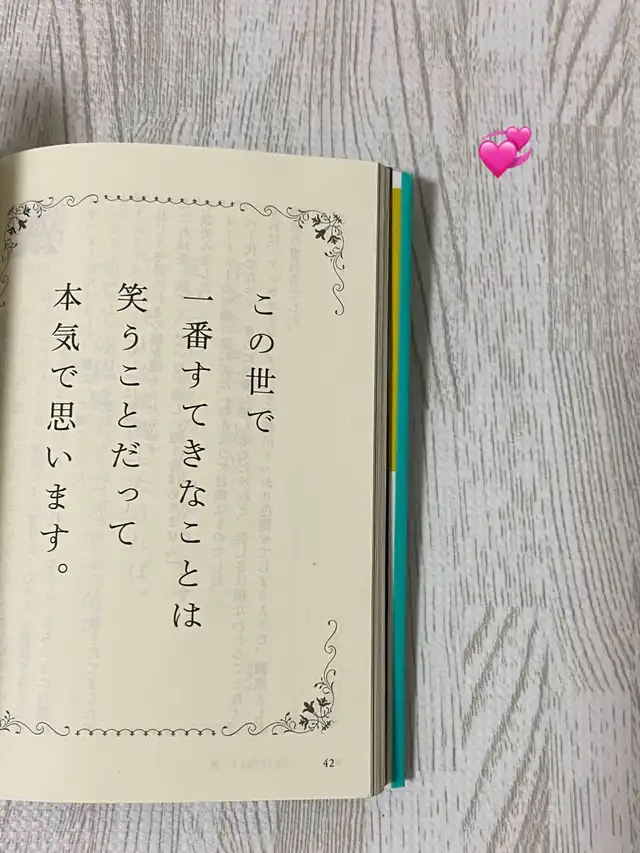 この世で
一番すてきなことは
笑うことだって
本気で思います。
42